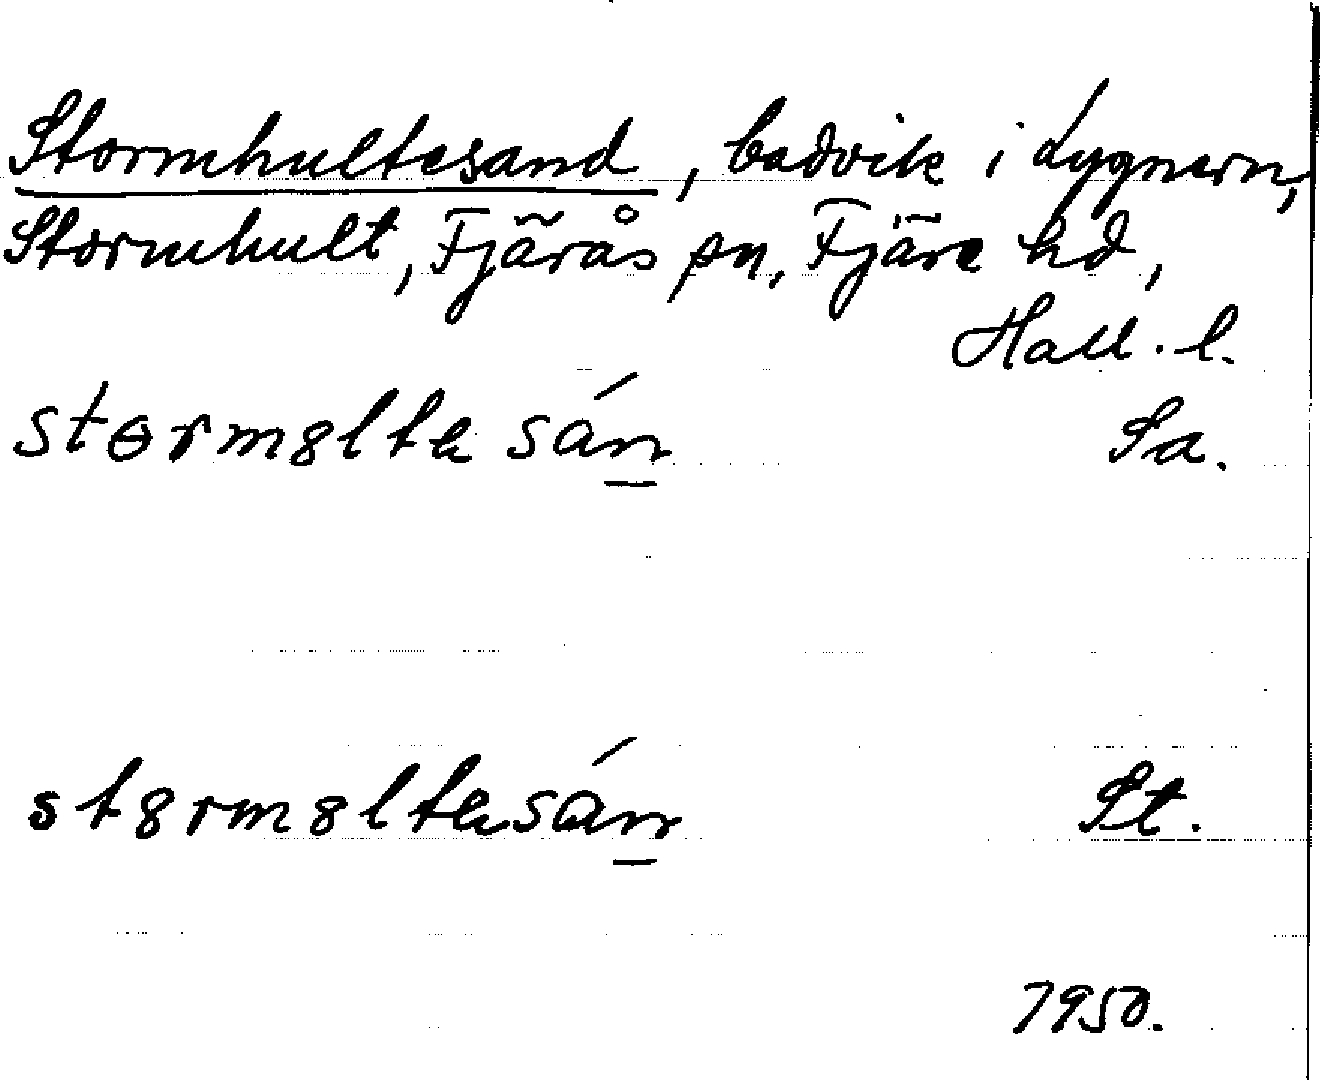 Stormhultesand, badvik i Lygnern,
Stormhult, Fjärås sn, Fjäre hd,
Hall. l.
stɵrm8lta sán Sa.
st8rm8ltasán St.
1950.